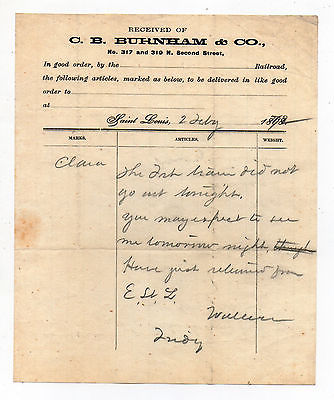 RECEIVED OF
C. B. BURNHAM & CO.,
No. 317 and 319 N. Second Street,
In good order, by the Railroad,
the following articles, marked as below, to be delivered in like good
order to
at
Saint Louis, 2 Feby 187
MARKS. ARTICLES. WEIGHT.
Clara
The Frt train did not
go out tonight.
You may expect to see
me tomorrow night
Have just returned from
E St L
Wallace